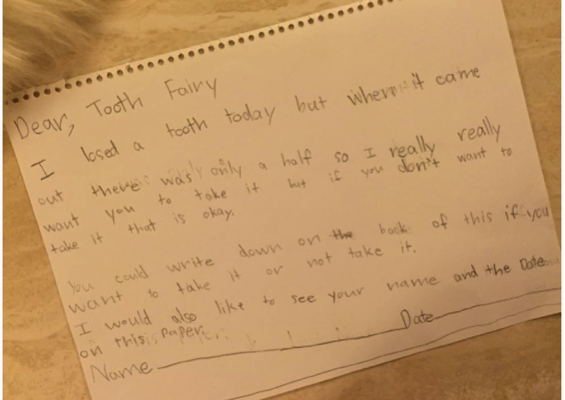 Dear, Tooth Fairy
I losed a tooth today but when it came
out there was only a half so I really really
want you to take it but if you don't want to
take it that is okay.
You could write down on the back of this if you
want to take it or not take it.
I would also like to see your name and the Date
on this paper.
Name Date